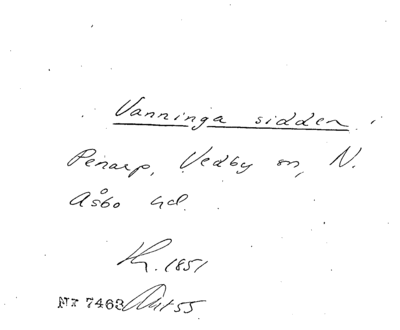 Vanninga sidden
Penarp, Vedby sn, N.
Åsbo hd.
1851
Nr 7463